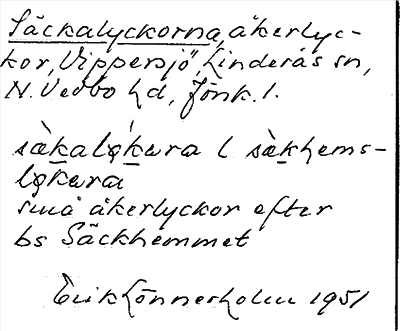 Säckalyckorna, åkerlyc-
kor, Vippersjö, Linderås sn,
N. Vedbo hd, Jönk. l.
sàkalọkara l sàkhems-
lọkara
små åkerlyckor efter
bs Säckhemmet
Erik Lönnerholm 1951